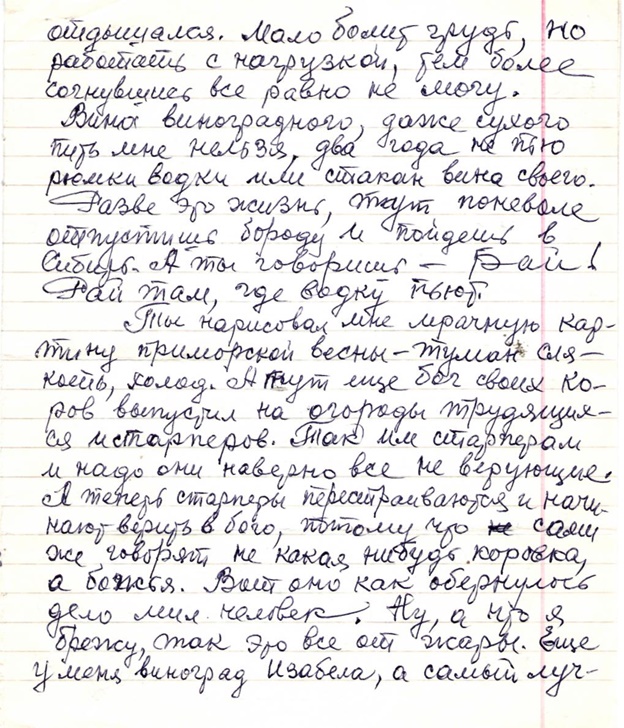 отдышался. Мало болит грудь, но
работать с нагрузкой, тем более
согнувшись все равно не могу.
Вина виноградного, даже сухого
пить мне нельзя, два года не пью
рюмки водки или стакан вина своего.
Разве это жизнь, тут поневоле
отпустишь бороду и пойдешь в
Сибирь. А ты говоришь — Бай!
Рай там, где водку пьют.
Ты нарисовал мне мрачную кар-
тину приморской весны – туман сля-
коть, холод. А тут еще бог своих ко-
ров выпустил на огороды трудящих-
ся и старперов. Так им старперам
и надо они наверно все не верующие.
А теперь старперы перестраиваются и начи-
нают верить в бога, потому что сами
же говорят не какая нибудь коровка,
а божья. Вот оно как обернулось
дело мил человек. Ну, а что я
брежу, так это все от жары. Еще
у меня виноград Изабела, а самый луч-